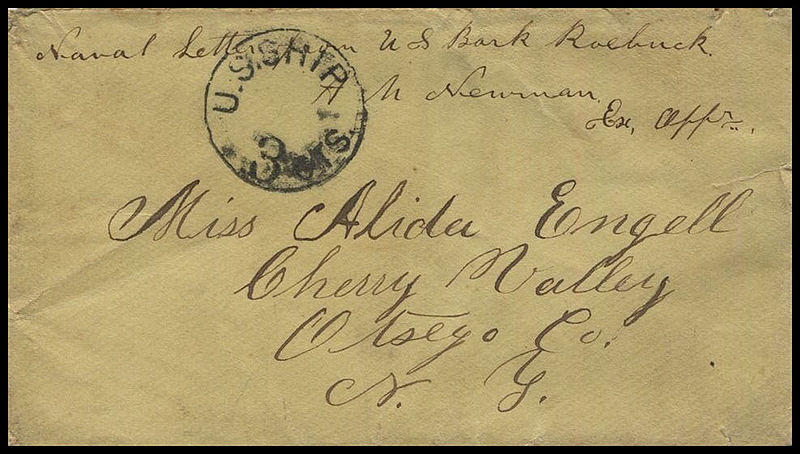 Naval Letter from U S Bark Roebuck.
H M Newman,
Ex, Offr.,
U.S. SHIP
3 CTS.
Miss Alida Engell
Cherry Valley
Otsego Co.
N. Y.